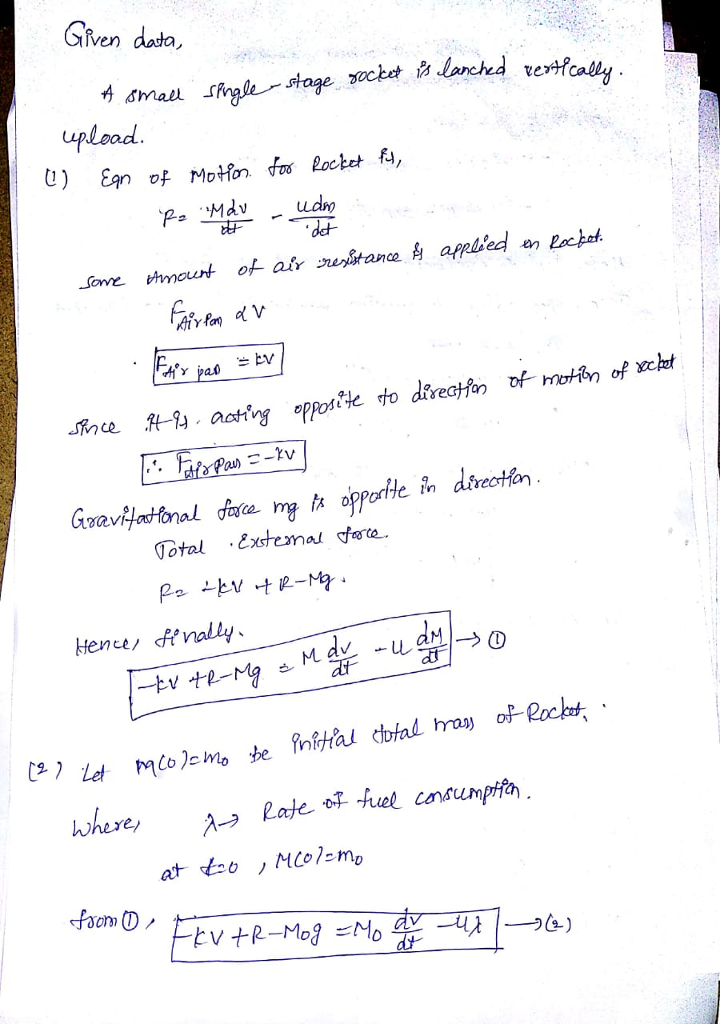 Given data,
A small single-stage rocket is lanched vertically.
upload.
(1) Eqn of Motion for Rocket is,
R = Mdv/dt - udm/dt
some Amount of air resistance is applied on Rocket.
F α V
F = kV
since it is acting opposite to direction of motion of rocket
∴ F = -kv
Gravitational force mg is opposite in direction.
Total External force.
R = -kv + R - Mg.
Hence, finally.
-kv + R - Mg = M dv/dt - u dM/dt → ①
(2) Let m(0) = mo be initial total mass of Rocket,
Where, λ → Rate of fuel consumption.
at t=0, M(0) = mo
from ①, -kv + R - Mog = Mo dv/dt - uλ → (2)